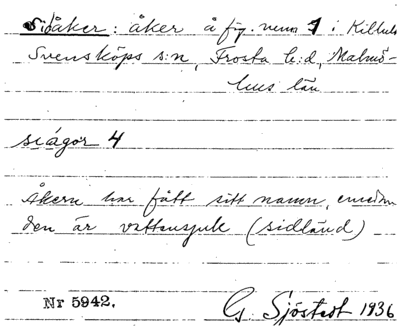 Sidåker: åker å fig. numn 1 i Killhult
Svensköps s:n, Frosta h:d, Malmö-
hus län
siågǫr 4
Åkern har fått sitt namn, emedan
den är vattensjuk (sidländ)
Nr 5942. G. Sjöstedt 1936